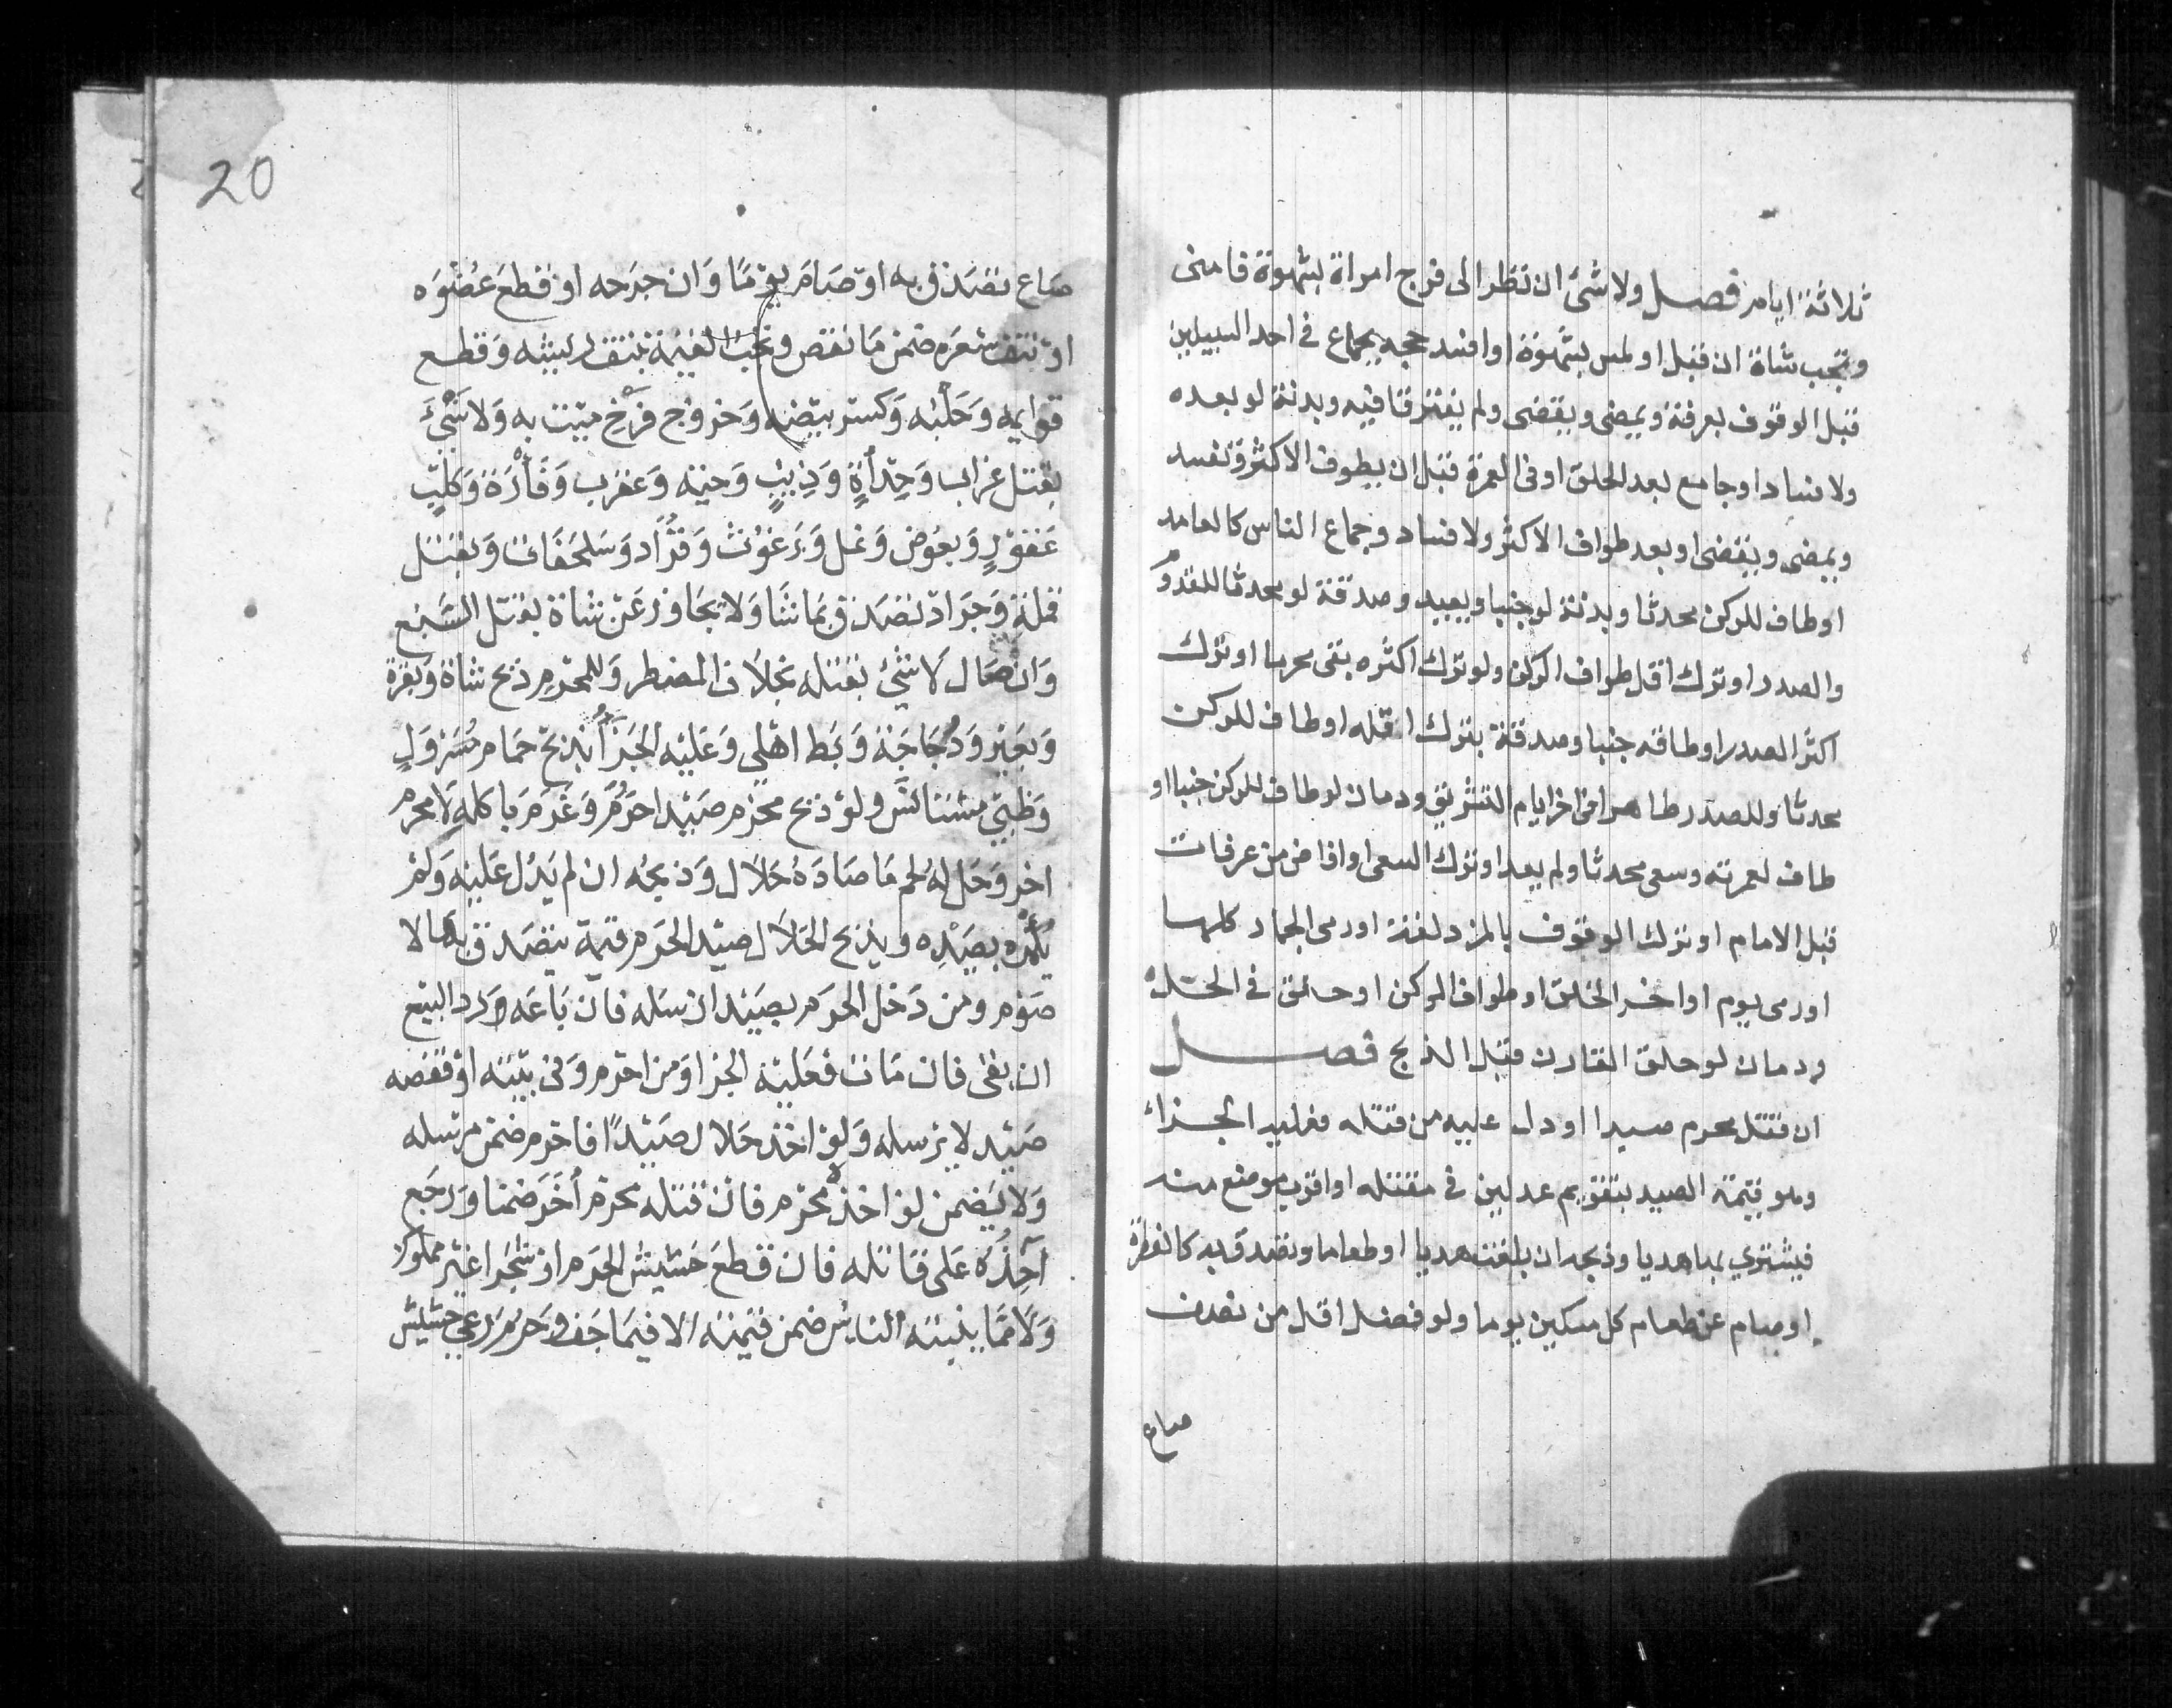 ثلاثة ايام فصل ولا شئ ان نظر الى فرج امراة بشهوة فامنى
وتجب شاة ان قبل او لمس بشهوة او افسد حجه بجماع في احد السبيلين
قبل الوقوف بعرفة ويمضى ويقضى ولم يفترقا فيه وبدنة لو بعده
ولا فساد او جامع بعد الحلق او فى العمرة قبل ان يطوف الاكثر وتفسد
ويمضى ويقضى او بعد طواف الاكثر ولا فساد وجماع الناس كالعامد
او طاف للركن محدثا وبدنة لو جنبا ويعيد وصدقة لو محدثا للقدوم
والصدر او ترك اقل طواف الركن ولو ترك اكثره بقى محرما او ترك
اكثر الصدر او طافه جنبا وصدقة بترك اقله او طاف للركن
محدثا وللصدر طاهرا فى اخر ايام التشريق ودمان لو طاف للركن جنبا او
طاف لعمرته وسعى محدثا ولم يعد او ترك السعى او افاض من عرفات
قبل الامام او ترك الوقوف بالمزدلفة او رمى الجمار كلها
او رمى يوم او اخر الحلق او طواف الركن او حلق في الحل
ودمان لو حلق القارن قبل الذبح فصل
ان قتل محرم صيدا او دل عليه من قتله فعليه الجزاء
وهو قيمة الصيد بتقويم عدلين في مقتله او اقرب موضع منه
فيشتري بها هديا وذبحه ان بلغت هديا او طعاما وتصدق به كالفطرة
او صام عن طعام كل مسكين يوما ولو فضل اقل من نصف
صاع
20
صَاع تصَدق به اوْ صَامَ يوْمًا وَان جرَحه او قطعَ عُضْوَه
اوْ نتف شعَره ضمن مَا نقص وتجب القيمة بنتف ريشه وَقطع
قوايمه وَحَلْبه وَكسر بيْضه وَخروج فرْخ ميّت به وَلا شَيْءَ
بقتل غراب وَحِدَأةٍ وَذِيبٍ وَحية وَعقرب وَفَأْرَة وَكلْبٍ
عَقوْرٍ وَبعُوض وَنمل وَبَرغوْث وَقُرَاد وَسَلحفَات وَبقتل
قملة وَجرَادة تصَدق بمَا شَا وَلا يجَاوز عَن شاة بقتل السَبع
وَان صَال لا شئ بقتله بخلاف المضطر وَللمحْرِم ذبح شاة وَبقرة
وَبعَير وَدُجَاجَة وَبَط اهْلي وَعَليْه الجَزَأُ بذبح حمام مُسَرْوَلٍ
وَظبيْ مسْتانس ولوْ ذبح محْرم صَيْدا حَرُمَ وَغرمَ باكله لا محرم
اخر وَحَل لهُ لحم مَا صَادَهُ حَلال وَذبحَه ان لم يَدُل عَليْه وَلمْ
يَأْمُرْه بصَيْدِه وبذبح الحَلال صيْد الحَرم قيمة يتصَدق بهَا لا
صَوْم ومن دَخل الحرَم بصَيْد ارسله فان بَاعَه رد البيْع
ان بقى فان مَات فعَليْه الجزا وَمن احْرم وَفى بيْته اوْ قفصه
صَيْد لا يرسله وَلوْ اخذ حَلال صَيْدًا فاحْرم ضمن مرْسله
وَلا يَضمن لو اخذه محْرم فان قتله محْرم أُخَرَ ضمنا وَرجَع
آخِذُهُ عَلى قاتله فان قطعَ حَشيْش الحرَم اوْ شجرا غيْر مملوك
وَلا مّمَا ينبته الناسُ ضمن قيْمته الا فيمَا جَف وَحَرُمَ رعي حشيش